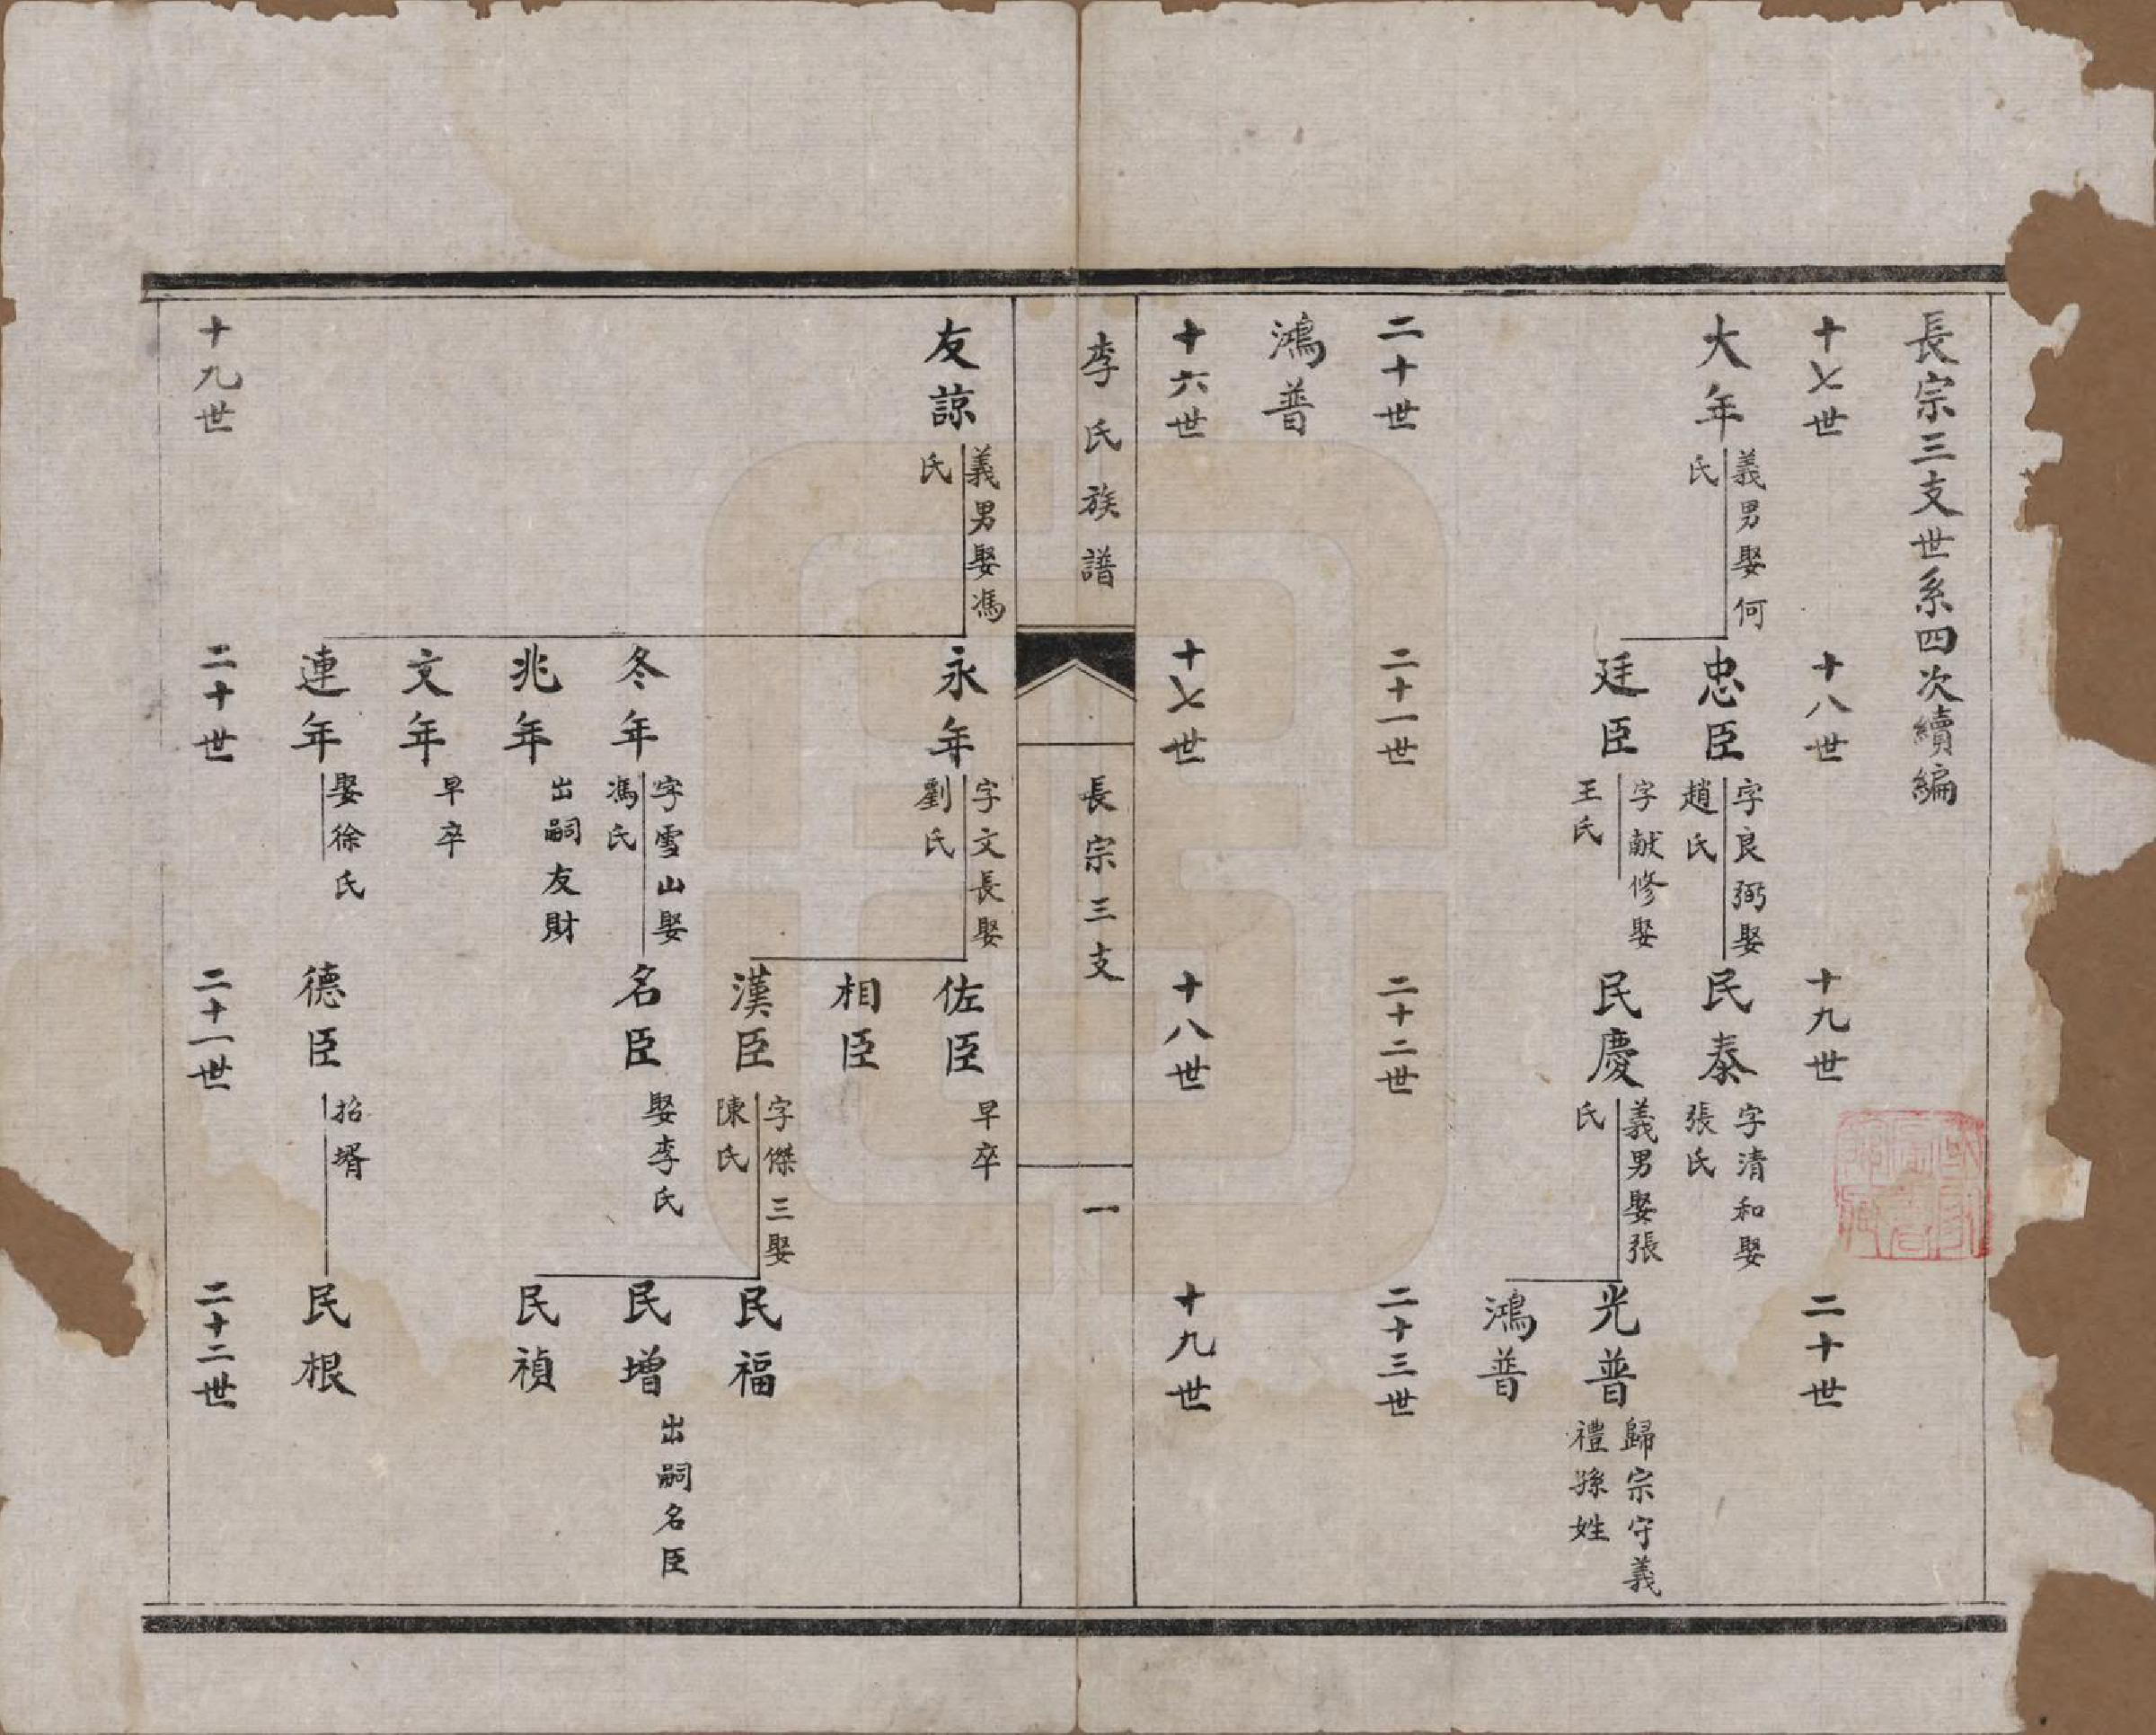 長宗三支世系四次續編
十七世
十八世
十九世
二十世
大年
義男娶何
氏
忠臣
字良弼娶
趙氏
民泰
字清和娶
張氏
廷臣
字献修娶
王氏
民慶
義男娶張
氏
光普
歸宗守義
禮孫姓
鴻普
二十世
二十一世
二十二世
二十三世
鴻普
十六世
十七世
十八世
十九世
李氏族譜
長宗三支
一
友諒
義男娶馮
氏
永年
字文長娶
劉氏
佐臣
早卒
相臣
漢臣
字傑三娶
陳氏
民福
民增
出嗣名臣
民禎
冬年
字雪山娶
馮氏
名臣
娶李氏
兆年
出嗣友財
文年
早卒
連年
娶徐氏
德臣
招壻
民根
十九世
二十世
二十一世
二十二世